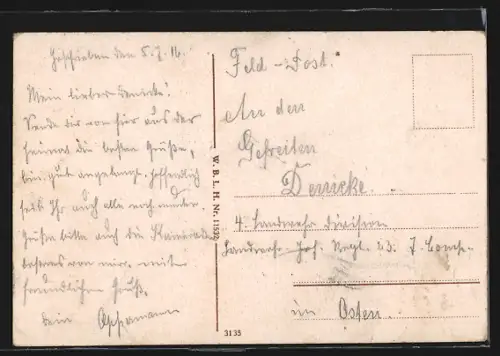 Geschrieben den 5.7.16.
Mein lieber Denicke!
Sende dir von hier aus der
Heimat die besten Grüße,
bin gut angelangt. Hoffentlich
seid Ihr auch alle noch munter.
Grüße bitte auch die Kameraden
bestens von mir. mit
freundlichen Gruß.
dein
W. B. L. H. Nr. 11532
Feld-Post.
An den
Gefreiten
Denicke.
4. Landwehr Division
Landwehr-Inf. Regt. 23. 7. Comp.
im Osten.
3135